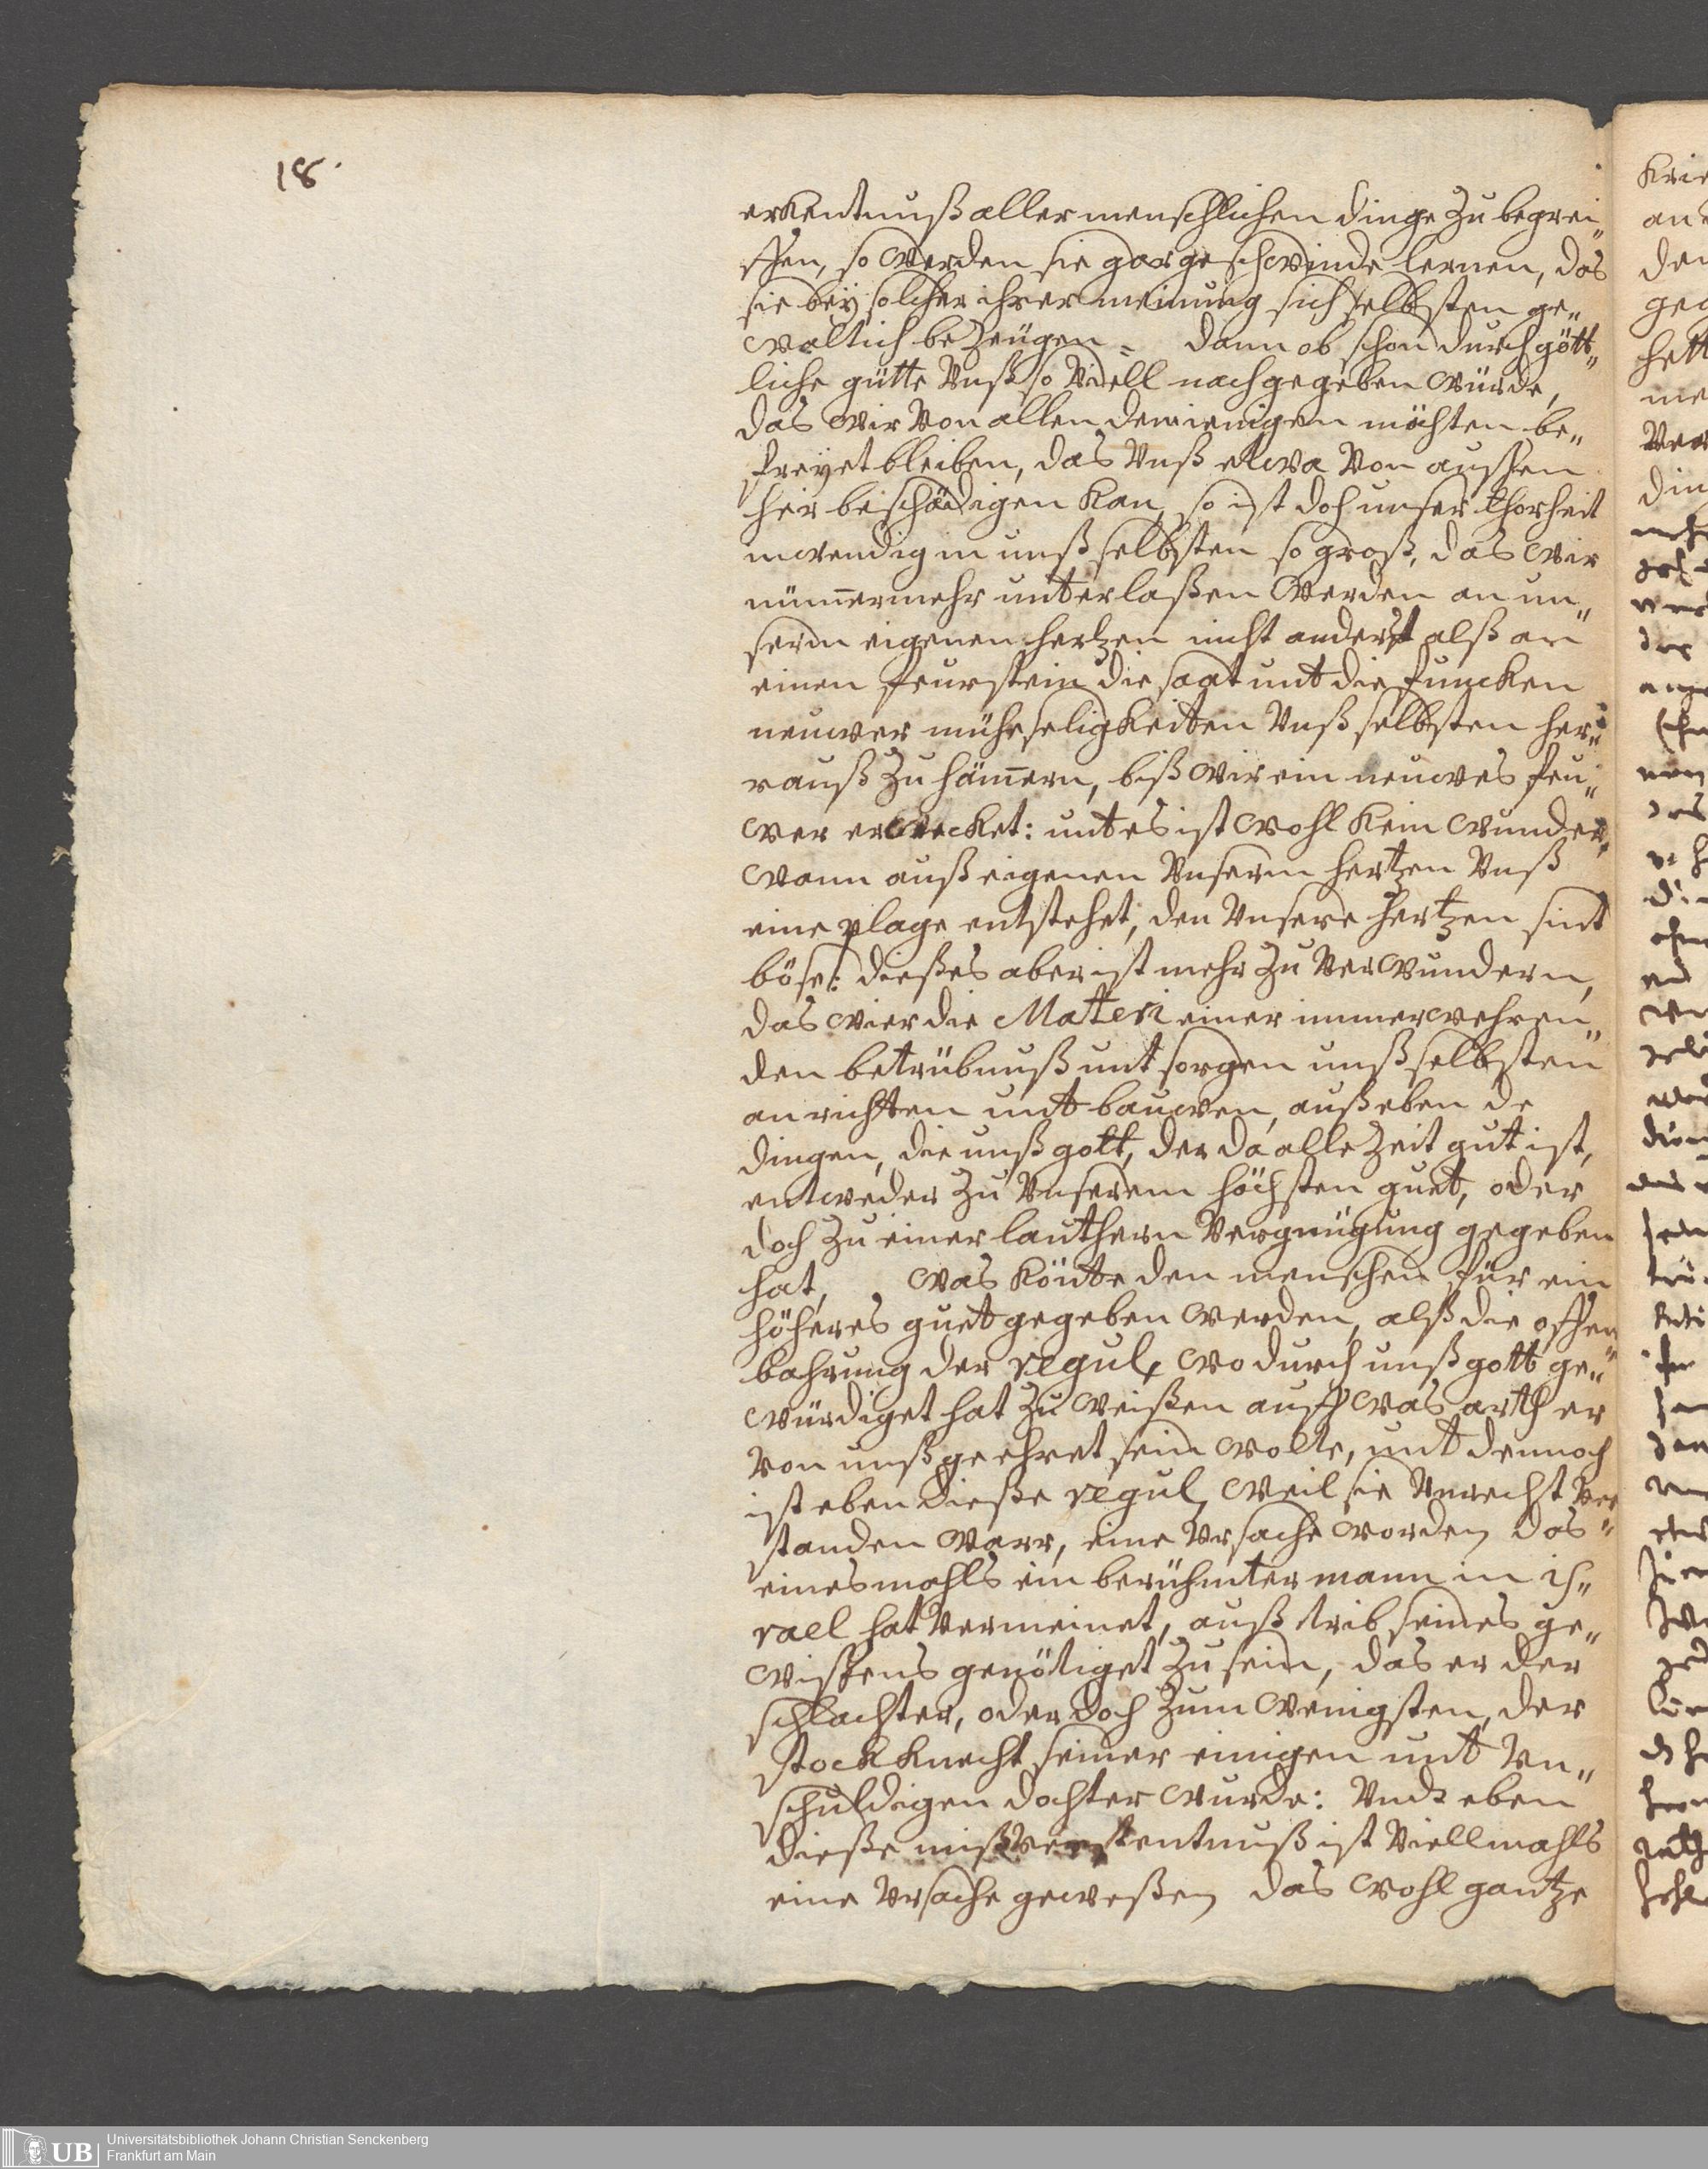 18.
erkentnuß aller menschlichen dinge zu begrei„
ffen, so werden sie gar geschwinde lernen, das
sie beÿ solcher ihrer meinung sich selbsten ge„
waltich bezeugen = dann ob schon durch gött„
liche gütte Vnß so Viell nachgegeben würde,
das wir Von allen demienigen möchten be„
freyet bleiben, das Vnß etwa Von aussen
her beschädigen kan, so ist doch unser thorheit
inwendig in unß selbsten so groß, das wir
nüm̄ermehr unterlaßen werden an un„
serm eigenen hertzen nicht anderst alß an
einen feurstein die saat unt die funcken
neuwer mühseligkeiten Vnß selbsten her„
rauß zu häm̄ern, biß wir ein neuwes feu„
wer erwecket: unt es ist wohl kein wunder,
wann auß eigenen Vnserm hertzen Vnß
eine plage entstehet, den Vnsere hertzen sint
böse: dießes aber ist mehr zu Verwundern,
das wier die Materi einer immerwehren„
den betrübnuß unt sorgen unß selbsten
anrichten unt bauwen, auß eben de
dingen, die unß gott, der da alle Zeit gut ist,
entweder zu Vnserem höchsten guet, oder
doch zu einer lauthern Vergnügung gegeben
hat, was könte den menschen für ein
höheres guet gegeben werden, alß die offen„
bahrung der regul, wo durch unß gott ge„
würdiget hat zu weißen auff was arth er
Von unß geehret sein wolte, unt dennoch
ist eben dieße regul, weil sie Vnrecht Ver„
standen warr, eine Vrsache worden das
einesmahls ein berühmter mann in is„
rael hat Vermeinet, auß trib seines ge„
wissens genötiget zu sein, das er der
schlachter, oder doch zum wenigsten, der
stockknecht seiner einigen unt Vn„
schuldigen dochter wurde: Vndt eben
dieße mißVerstentnuß ist Viellmahls
eine Vrsache geweßen das wohl gantze
UB
Universitätsbibliothek Johann Christian Senckenberg
Frankfurt am Main